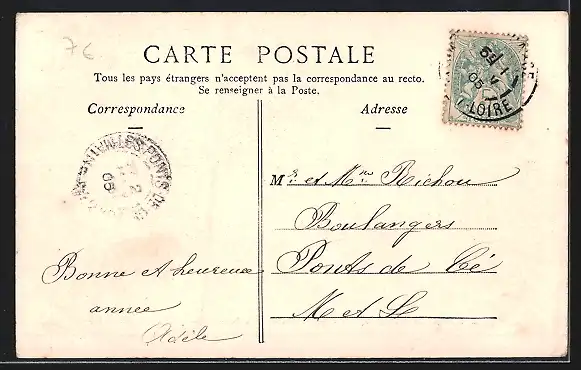 7 €
CARTE POSTALE
Tous les pays étrangers n'acceptent pas la correspondance au recto.
Se renseigner à la Poste.
Correspondance
Adresse
Bonne et heureuse
annee
Adèle
Mr. et Mme Richou
Boulangers
Ponts de Cé
M et L
LOIRE
LES PONTS DE
05